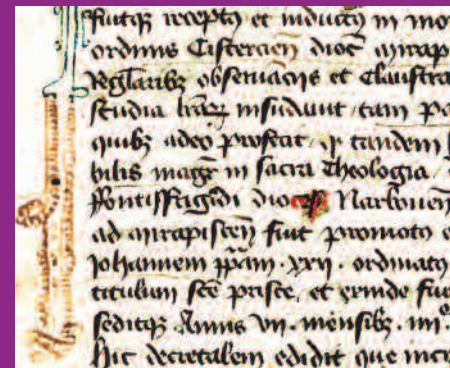 fuitq receptq et inductq in mo
ordinis Cistercien dioc mirap
Reglaribz obseruacijs et Claustra
studia lrarꝝ insudauit tam pa
quibz adeo profecit ꝙ tandem
bilis magr in sacra Theologia
ffontisffrigidi dioces Narbonen
ad mirapiscen fuit promotq e
Johannem ppam xxij ordinatq
titulum sce prisce et exinde fu
seditq Annis vij mensibz iiij
hic decretalem edidit que inc